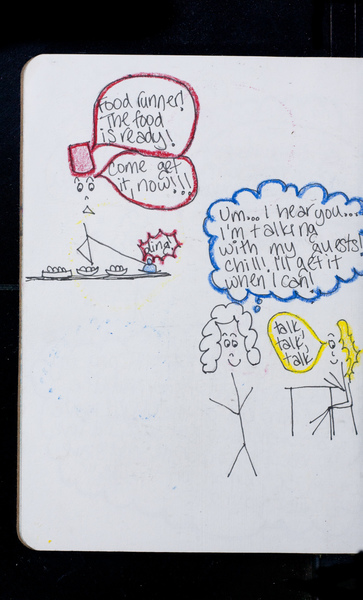 Food runner!
The food
is ready!
Come get
it, now!!!
ding!
Um... I hear you...
I'm talking
with my guests!
Chill! I'll get it
when I can!
talk,
talk,
talk